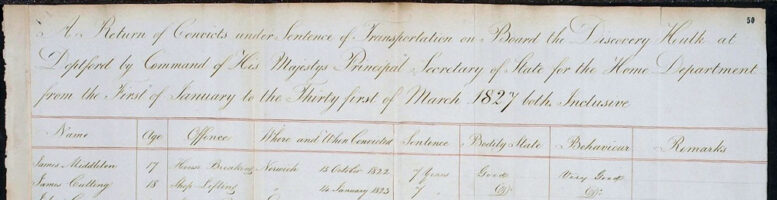 50
A Return of Convicts under Sentence of Transportation on Board the Discovery Hulk at
Deptford by Command of His Majestys Principal Secretary of State for the Home Department
from the First of January to the Thirty first of March 1827 both Inclusive
Name Age Offence Where and When Convicted Sentence Bodily State Behaviour Remarks
James Middleton 17 House Breaking Norwich 15 October 1822 7 Years Good Very Good
James Cutting 18 Shop Lifting " 14 January 1823 7 " Do. Do.